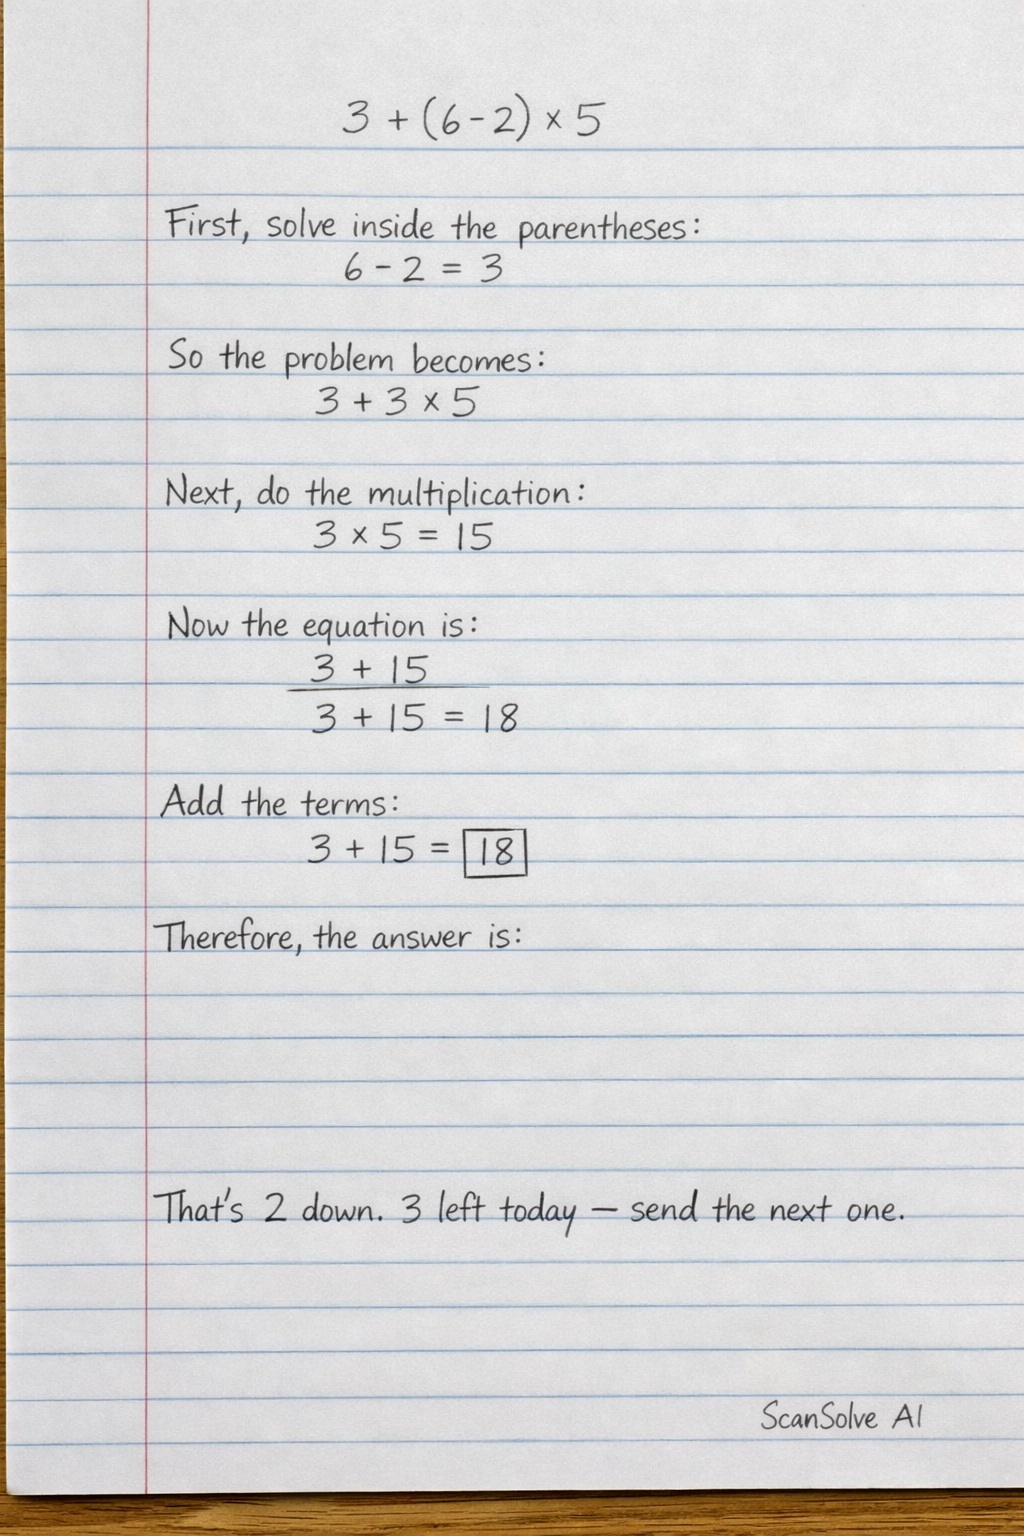 3 + (6 - 2) × 5
First, solve inside the parentheses:
6 - 2 = 3
So the problem becomes:
3 + 3 × 5
Next, do the multiplication:
3 × 5 = 15
Now the equation is:
3 + 15
3 + 15 = 18
Add the terms:
3 + 15 = 18
Therefore, the answer is:
That's 2 down. 3 left today — send the next one.
ScanSolve AI